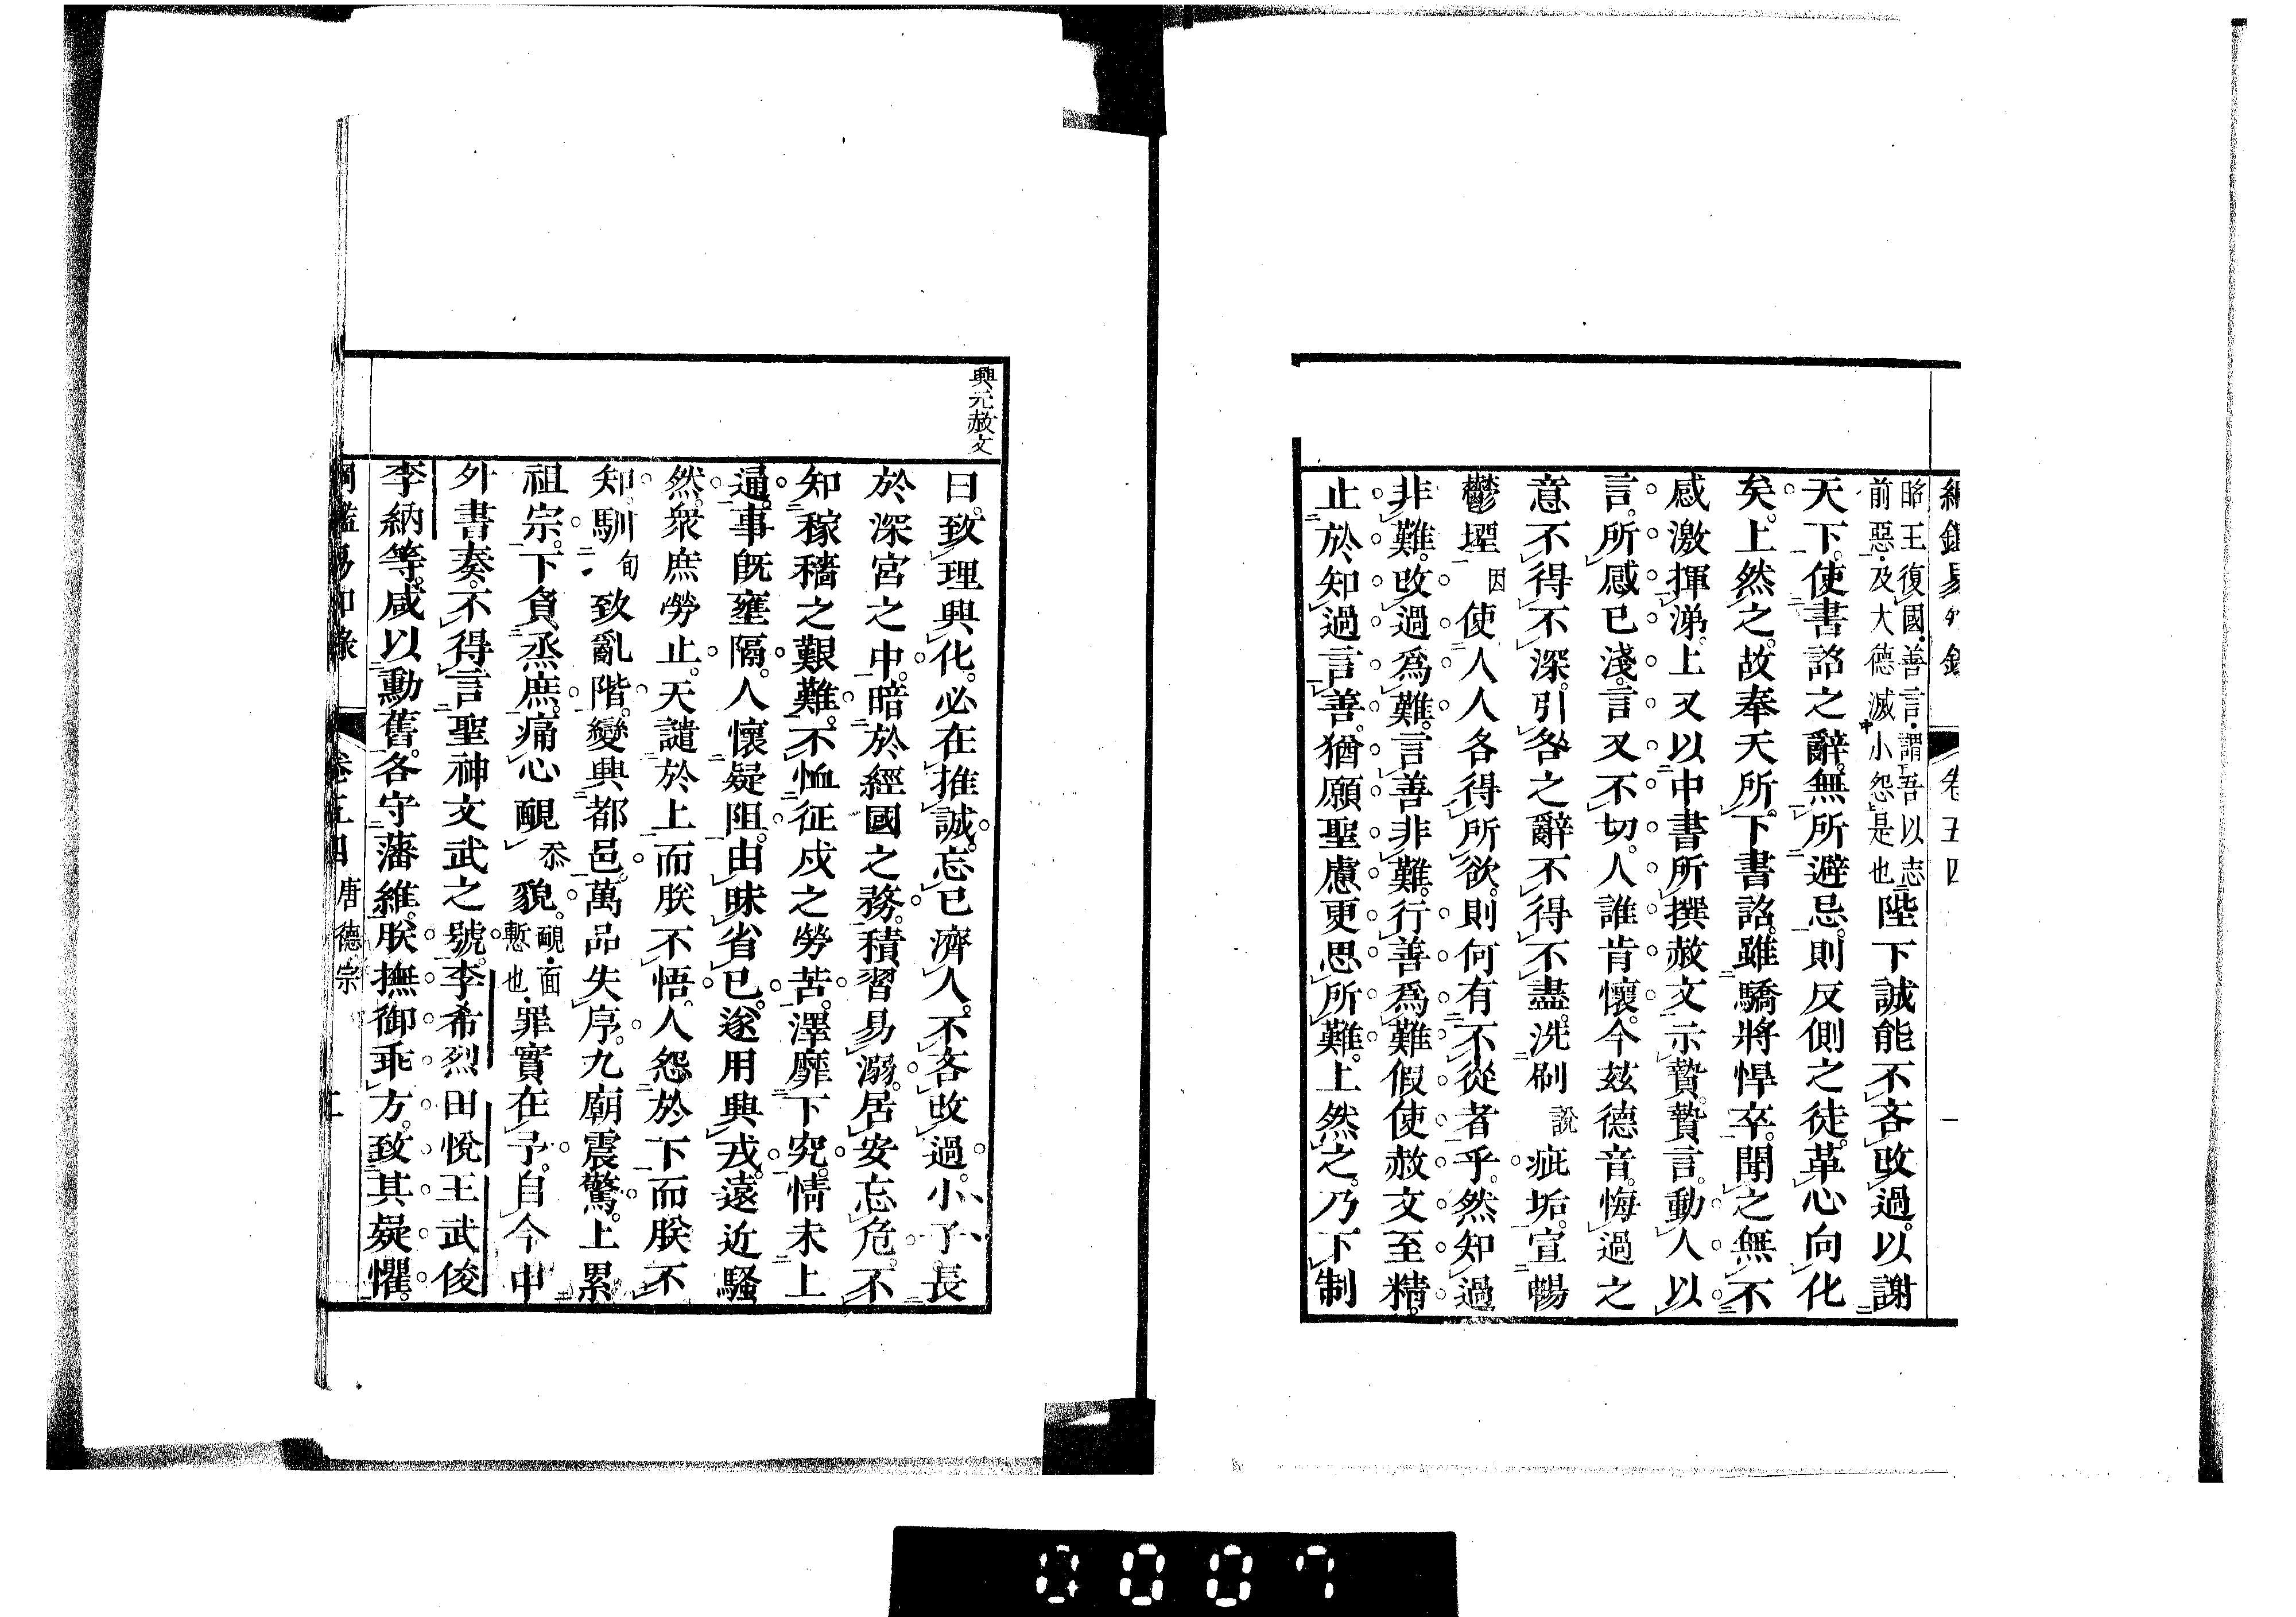 昭王復國善言謂吾以志
前惡及大德滅小怨是也
陛下誠能不吝攺過。以謝
天下。使書詔之辭。無所避忌。則反側之徒。革心向化
矣。上然之。故奉天所下書詔。雖驕將悍卒。聞之無不
感激揮涕。上又以中書所撰赦文示贄。贄言。動人以
言。所感已淺。言又不切。人誰肯懷。今玆德音。悔過之
意不得不深。引咎之辭不得不盡。洗刷說疵垢。宣暢
鬱堙因使人人各得所欲。則何有不從者乎。然知過
非難。攺過爲難。言善非難。行善爲難。假使赦文至精。
止於知過言善。猶願聖慮更思所難。上然之。乃下制
卷五四
一
興元赦文
曰。致理興化。必在推誠。忘己濟人。不吝攺過。小子長
於深宮之中。暗於經國之務。積習易溺。居安忘危。不
知稼穡之艱難。不恤征戍之勞苦。澤靡下究。情未上
通。事旣壅隔。人懷疑阻。由昧省己。遂用興戎。遠近騷
然。衆庶勞止。天譴於上而朕不悟。人怨於下而朕不
知。馴旬致亂階。變興都邑。萬品失序。九廟震驚。上累
祖宗。下負烝庶。痛心靦忝貌。靦面慙也罪實在予。自今中
外書奏。不得言聖神文武之號。李希烈田悅王武俊
李納等。咸以勳舊。各守藩維。朕撫御乖方。致其疑懼。
綱鑑易知錄
卷五四
唐德宗
二
0007